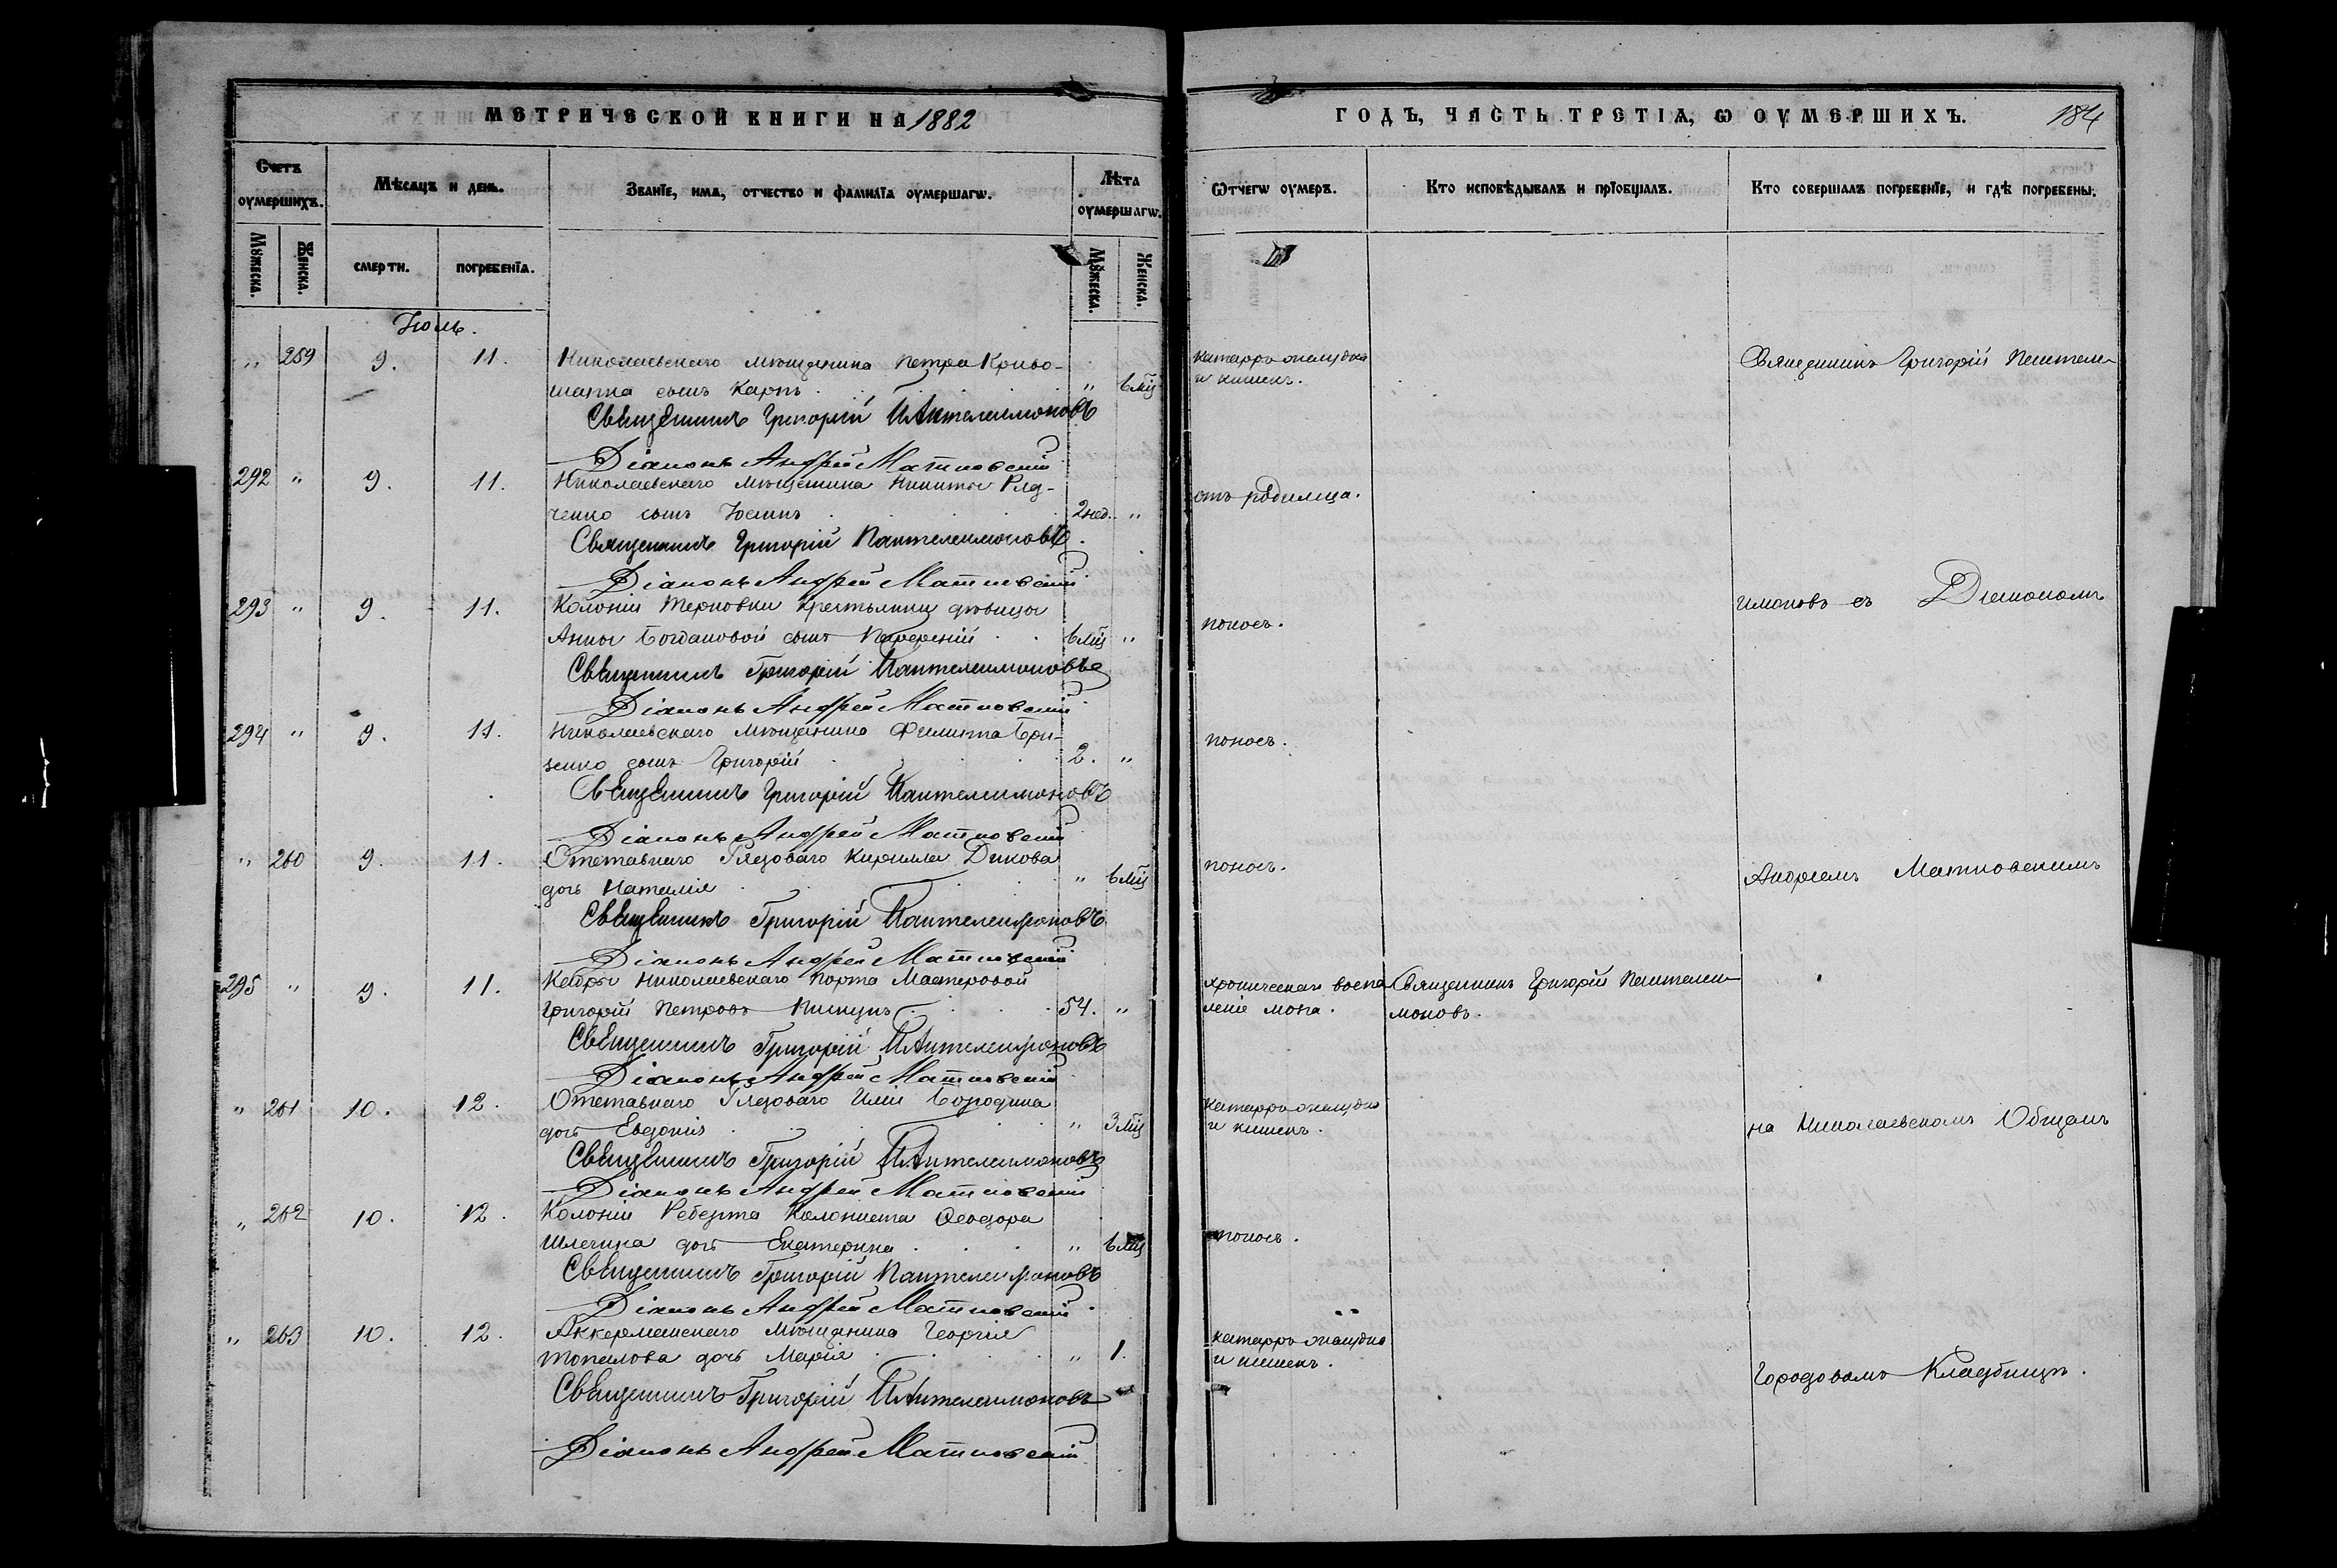 МЕТРИЧЕСКОЙ КНИГИ НА 1882
ГОДЪ, ЧАСТЬ ТРЕТІѦ, Ѡ ОУМЕРШИХЪ.
184
Счетъ оумершихъ.
Мѣсяцъ и день.
Званіе, имѧ, отчество и фамиліѧ оумершагѡ.
Лѣта оумершагѡ.
Ѿтчегѡ оумеръ.
Кто исповѣдывалъ и пріобщалъ.
Кто совершалъ погребеніе, и гдѣ погребены.
Мꙋжеска.
Женска.
смерти.
погребеніѧ.
Мꙋжеска.
Женска.
Іюль.
" 259 9. 11. Николаевскаго мѣщанина Петра Криво-
шапка сынъ Карпъ . . . " 6 мѣс
катарръ желудка
и кишекъ.
Священникъ Григорій Пантеле-
Священникъ Григорій Пантелеимоновъ
Діаконъ Андрей Матковскій
292 " 9. 11. Николаевскаго мѣщанина Никиты Ряд-
ченко сынъ Іосифъ . . . 2 нед. "
отъ родимца.
Священникъ Григорій Пантелеимоновъ.
Діаконъ Андрей Матковскій
293 " 9. 11. Колоніи Терновки крестьянки дѣвицы
Анны Богдановой сынъ Парфеній . . 6 мѣс "
поносъ.
имоновъ съ Діакономъ
Священникъ Григорій Пантелеимоновъ
Діаконъ Андрей Матковскій
294 " 9. 11. Николаевскаго мѣщанина Филиппа Гри-
ценко сынъ Григорій . . . 2. "
поносъ.
Священникъ Григорій Пантелеимоновъ
Діаконъ Андрей Матковскій
" 260 9. 11. Отставнаго Рядоваго Кирилла Дикова
дочь Наталія . . . " 6 мѣс
поносъ.
Андреемъ Матковскимъ
Священникъ Григорій Пантелеимоновъ
Діаконъ Андрей Матковскій
295 " 9. 11. Кадры Николаевскаго Порта Мастеровой
Григорій Петровъ . . . 54. "
хроническая воспа-
леніе мозга.
Священникъ Григорій Пантелеи-
моновъ.
Священникъ Григорій Пантелеимоновъ
Діаконъ Андрей Матковскій
" 261 10. 12. Отставнаго Рядоваго Ильи Бородина
дочь Евдокія . . . " 3 мѣс
катарръ желудка
и кишекъ.
на Николаевскомъ Общемъ
Священникъ Григорій Пантелеимоновъ
Діаконъ Андрей Матковскій
" 262 10. 12. Колоніи Колониста Ѳеодора
дочь Екатерина . . . " 6 мѣс
поносъ.
Священникъ Григорій Пантелеимоновъ
Діаконъ Андрей Матковскій
" 263 10. 12. Аккерманскаго мѣщанина Георгія
Топалова дочь Марія . . . " 1.
катарръ желудка
и кишекъ.
Городовомъ Кладбищѣ.
Священникъ Григорій Пантелеимоновъ
Діаконъ Андрей Матковскій